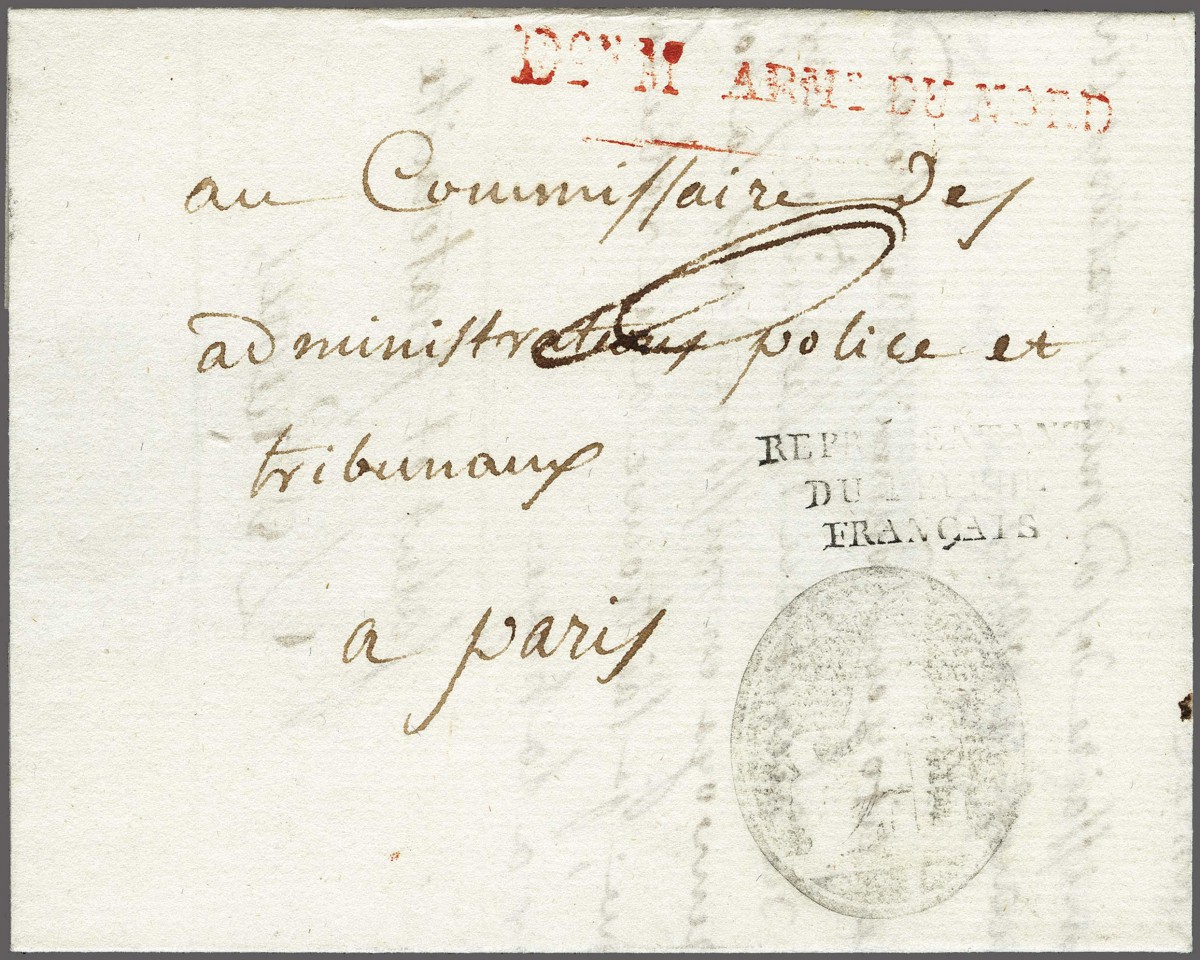 Don M ARMe DU NORD
au Commissaire des
administrations police et
tribunaux
a paris
REPRÉSENTANT
DU PEUPLE
FRANÇAIS